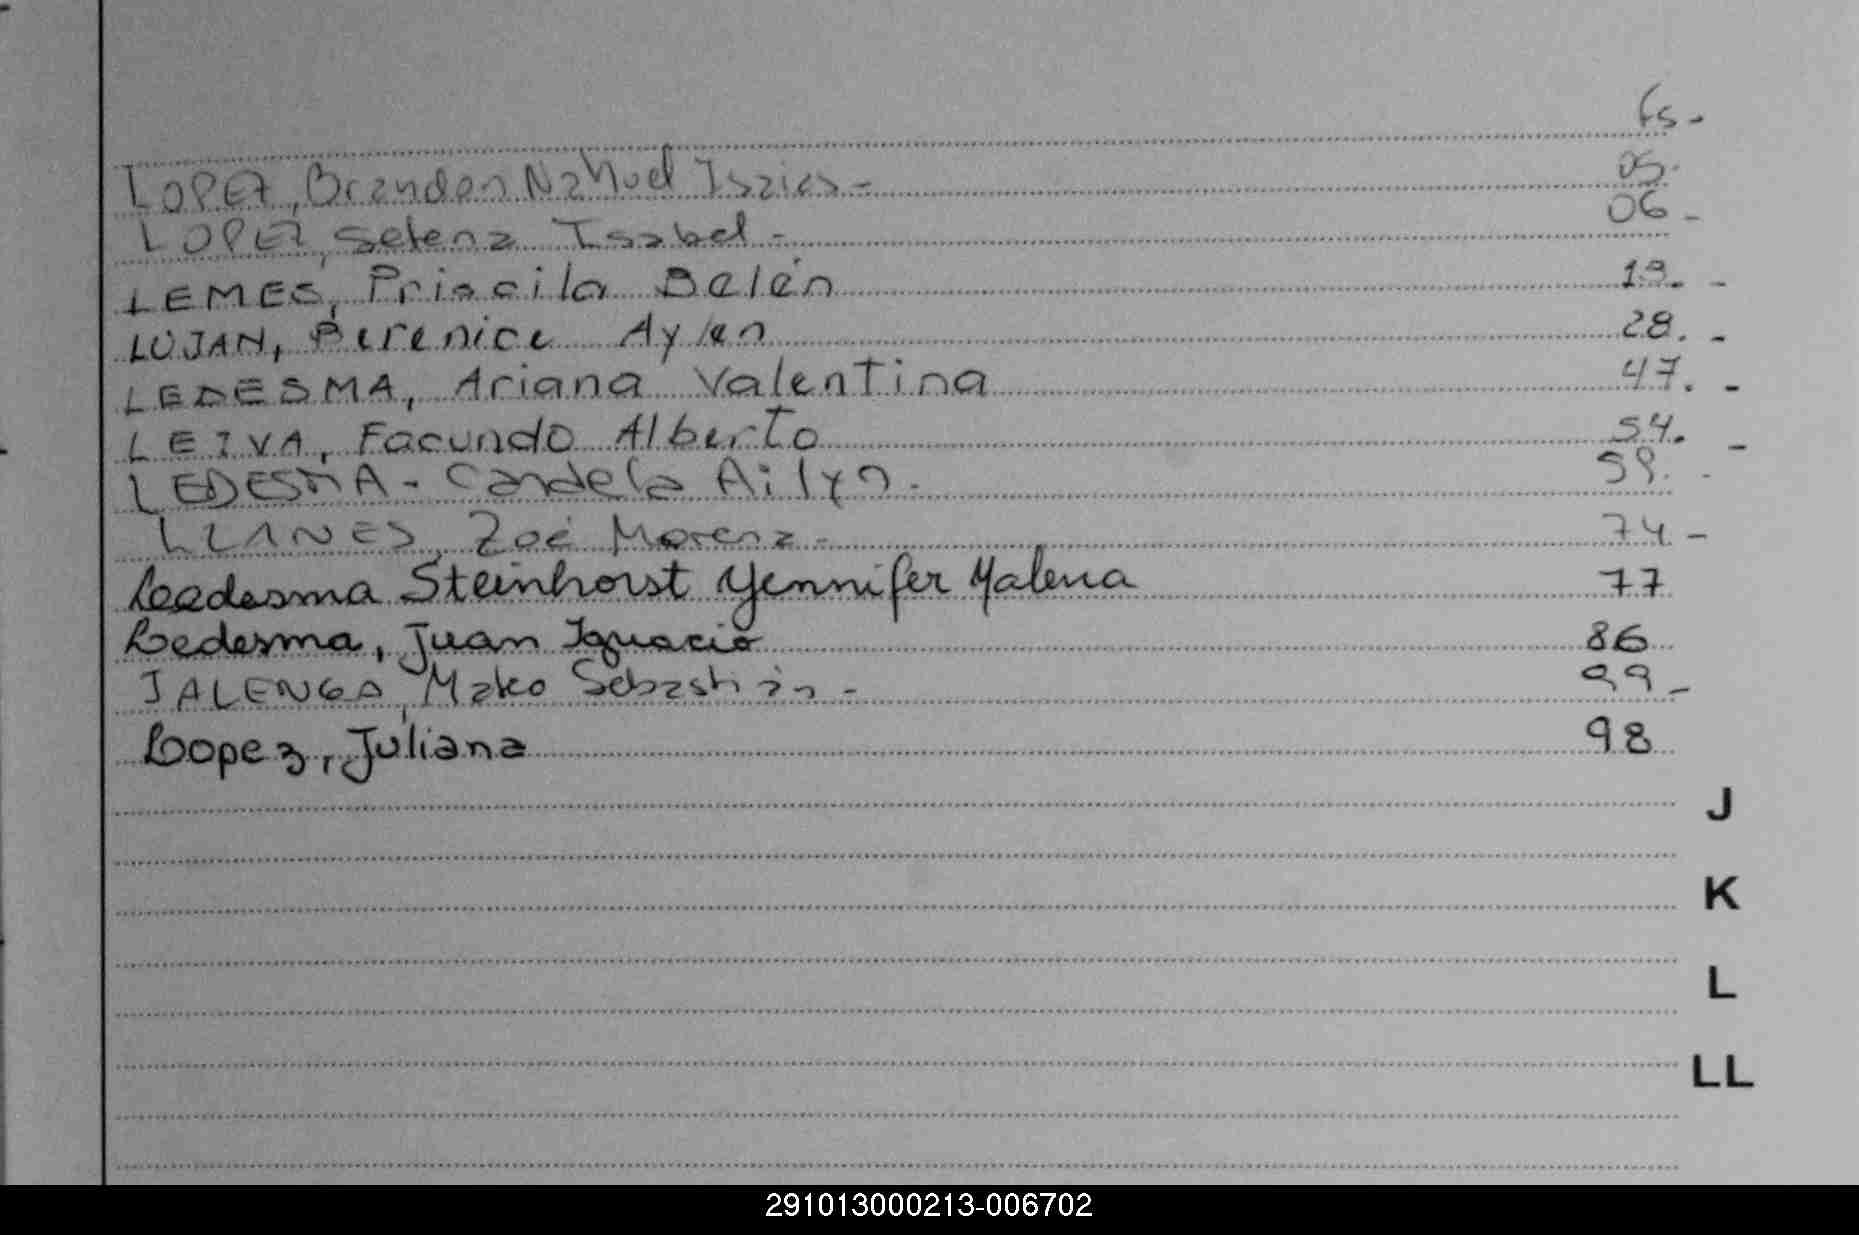 Fs.-
LOPEZ, Brandon Nahuel Isaias.- 05.
LOPEZ, Selena Isabel.- 06.-
LEMES, Priscila Belén 19.-
LUJAN, Berenice Aylen 28.-
LEDESMA, Ariana Valentina 47.-
LEIVA, Facundo Alberto 54.-
LEDESMA- Candela Ailyn. 59.-
LLANES, Zoé Morena.- 74.-
Ledesma Steinhorst Yennifer Malena 77
Ledesma, Juan Ignacio 86
JALENGA, Mateo Sebastián.- 99.-
Lopez, Juliana 98
J
K
L
LL
291013000213-006702